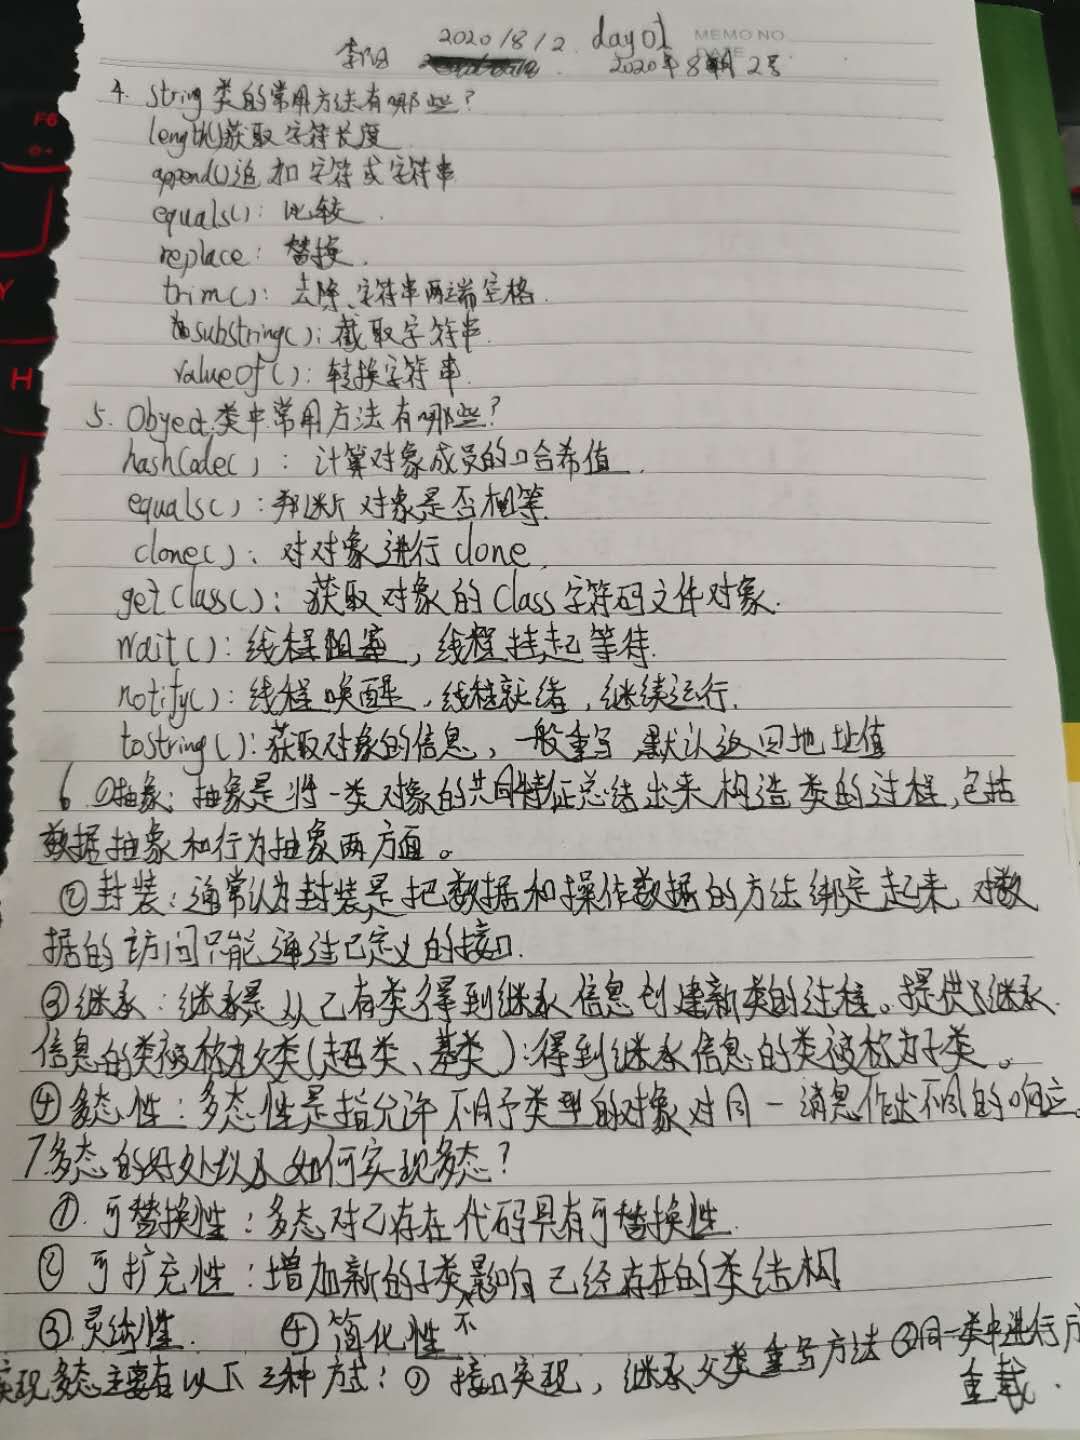 2020/8/2 day01 MEMO NO
李阳 2020年8月2号
4. String类的常用方法有哪些?
length()获取字符长度
append()追加字符或字符串
equals(): 比较.
replace: 替换.
trim(): 去除字符串两端空格.
substring(): 截取字符串.
valueOf(): 转换字符串.
5. Object类中常用方法有哪些?
hashCode(): 计算对象成员的哈希值.
equals(): 判断对象是否相等.
clone(): 对对象进行clone.
getClass(): 获取对象的Class字符码文件对象.
wait(): 线程阻塞, 线程挂起等待.
notify(): 线程唤醒, 线程就绪, 继续运行.
toString(): 获取对象的信息, 一般重写 默认返回地址值
6 ①抽象: 抽象是将一类对象的共同特征总结出来构造类的过程, 包括
数据抽象和行为抽象两方面。
②封装: 通常认为封装是把数据和操作数据的方法绑定起来, 对数
据的访问只能通过已定义的接口.
③继承: 继承是从已有类得到继承信息创建新类的过程。提供了继承
信息的类被称为父类(超类、基类): 得到继承信息的类被称为子类。
④多态性: 多态性是指允许不同子类型的对象对同一消息作出不同的响应。
7.多态的好处以及如何实现多态?
①. 可替换性: 多态对已存在代码具有可替换性.
② 可扩充性: 增加新的子类不影响已经存在的类结构
③灵活性. ④简化性
实现多态主要有以下三种方式: ① 接口实现, 继承父类重写方法 ③同一类中进行方
重载.